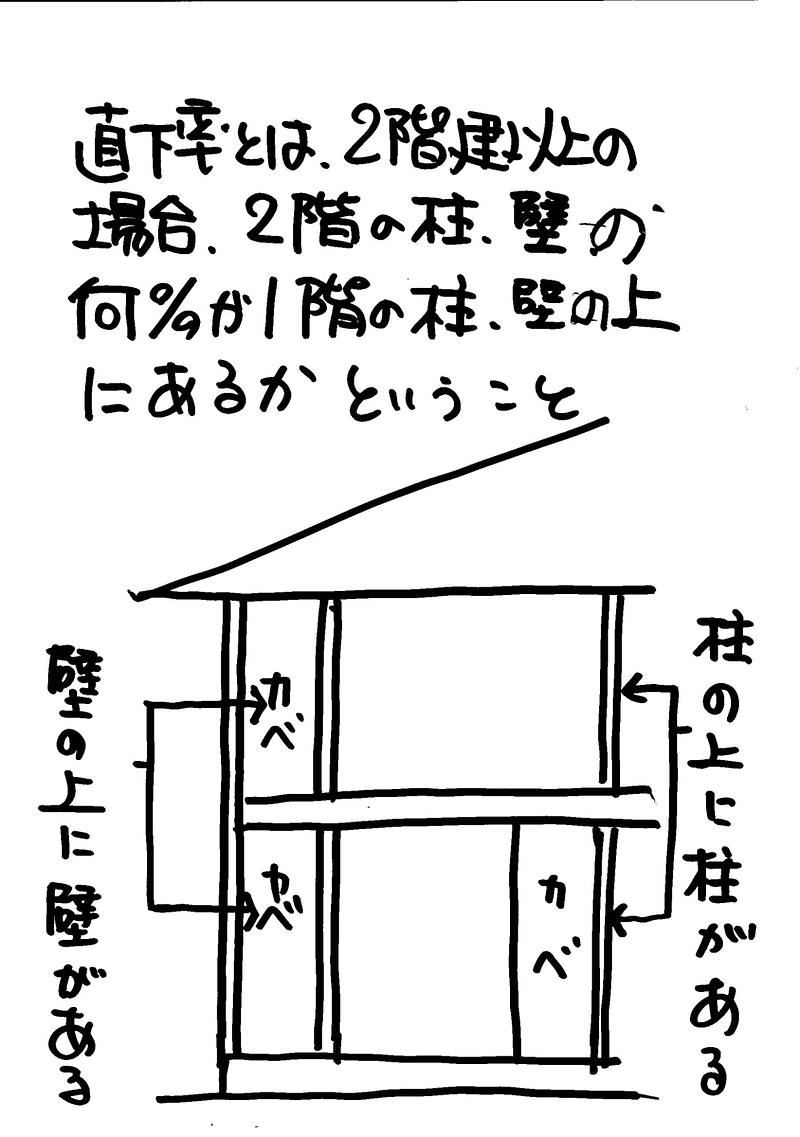 直下率とは、2階建以上の
場合、2階の柱、壁の
何%が1階の柱、壁の上
にあるかということ
カベ
カベ
カベ
壁の上に壁がある
柱の上に柱がある